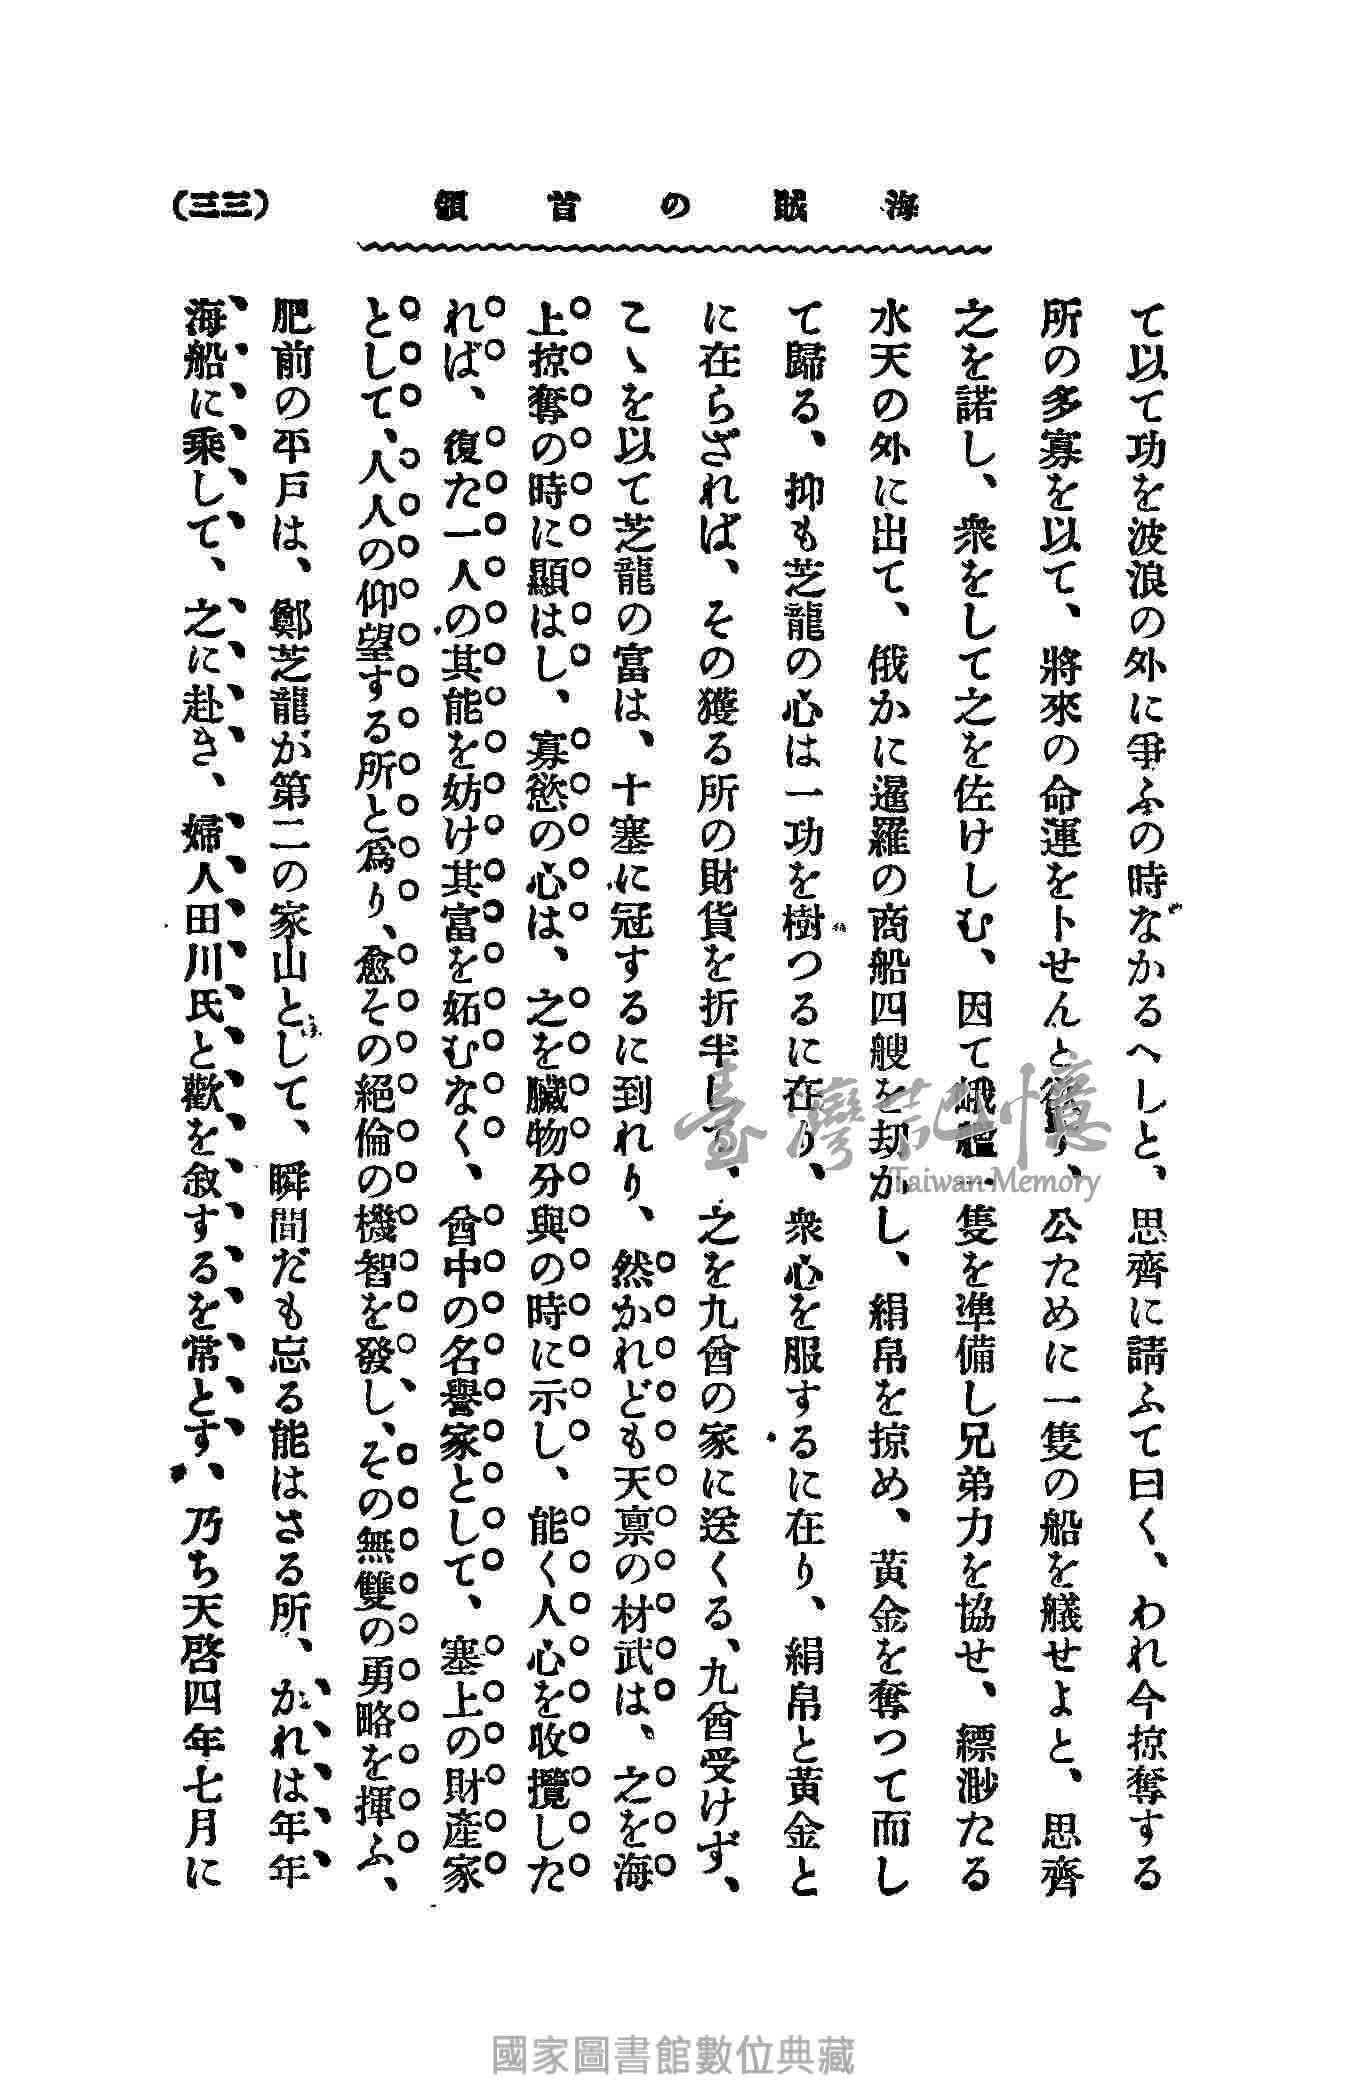 海賊の首領
（三三）
て以て功を波浪の外に爭ふの時なかるへしと、思齊に請ふて曰く、われ今掠奪する
所の多寡を以て、將來の命運を卜せんと欲す、公ために一隻の船を艤せよと、思齊
之を諾し、衆をして之を佐けしむ、因て一隻を準備し兄弟力を協せ、縹渺たる
水天の外に出て、俄かに暹羅の商船四艘を刧かし、絹帛を掠め、黄金を奪つて而し
て歸る、抑も芝龍の心は一功を樹つるに在り、衆心を服するに在り、絹帛と黄金と
に在らざれば、その獲る所の財貨を折半して、之を九酋の家に送くる、九酋受けず、
こゝを以て芝龍の富は、十塞に冠するに到れり、然かれども天禀の材武は、之を海
上掠奪の時に顯はし、寡慾の心は、之を臓物分與の時に示し、能く人心を收攬した
れば、復た一人の其能を妨け其富を妬むなく、酋中の名譽家として、塞上の財産家
として、人人の仰望する所と爲り、愈その絕倫の機智を發し、その無雙の勇略を揮ふ、
肥前の平戸は、鄭芝龍が第二の家山として、瞬間だも忘る能はさる所、かれは年年
海船に乘して、之に赴き、婦人田川氏と歡を敘するを常とす、乃ち天啓四年七月に
臺灣記憶
Taiwan Memory
國家圖書館數位典藏